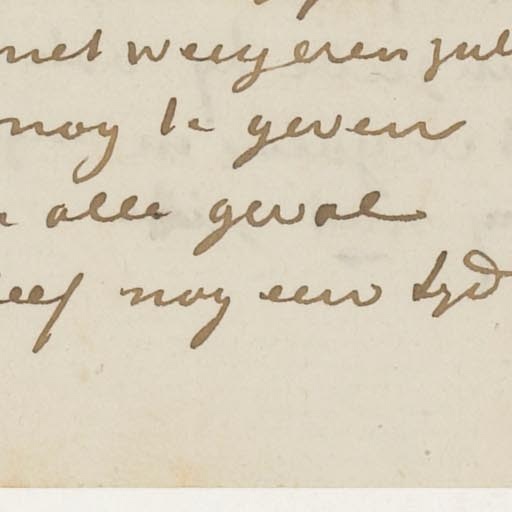 net weigeren zul
nog te geven
n alle geval
leef nog een tyd